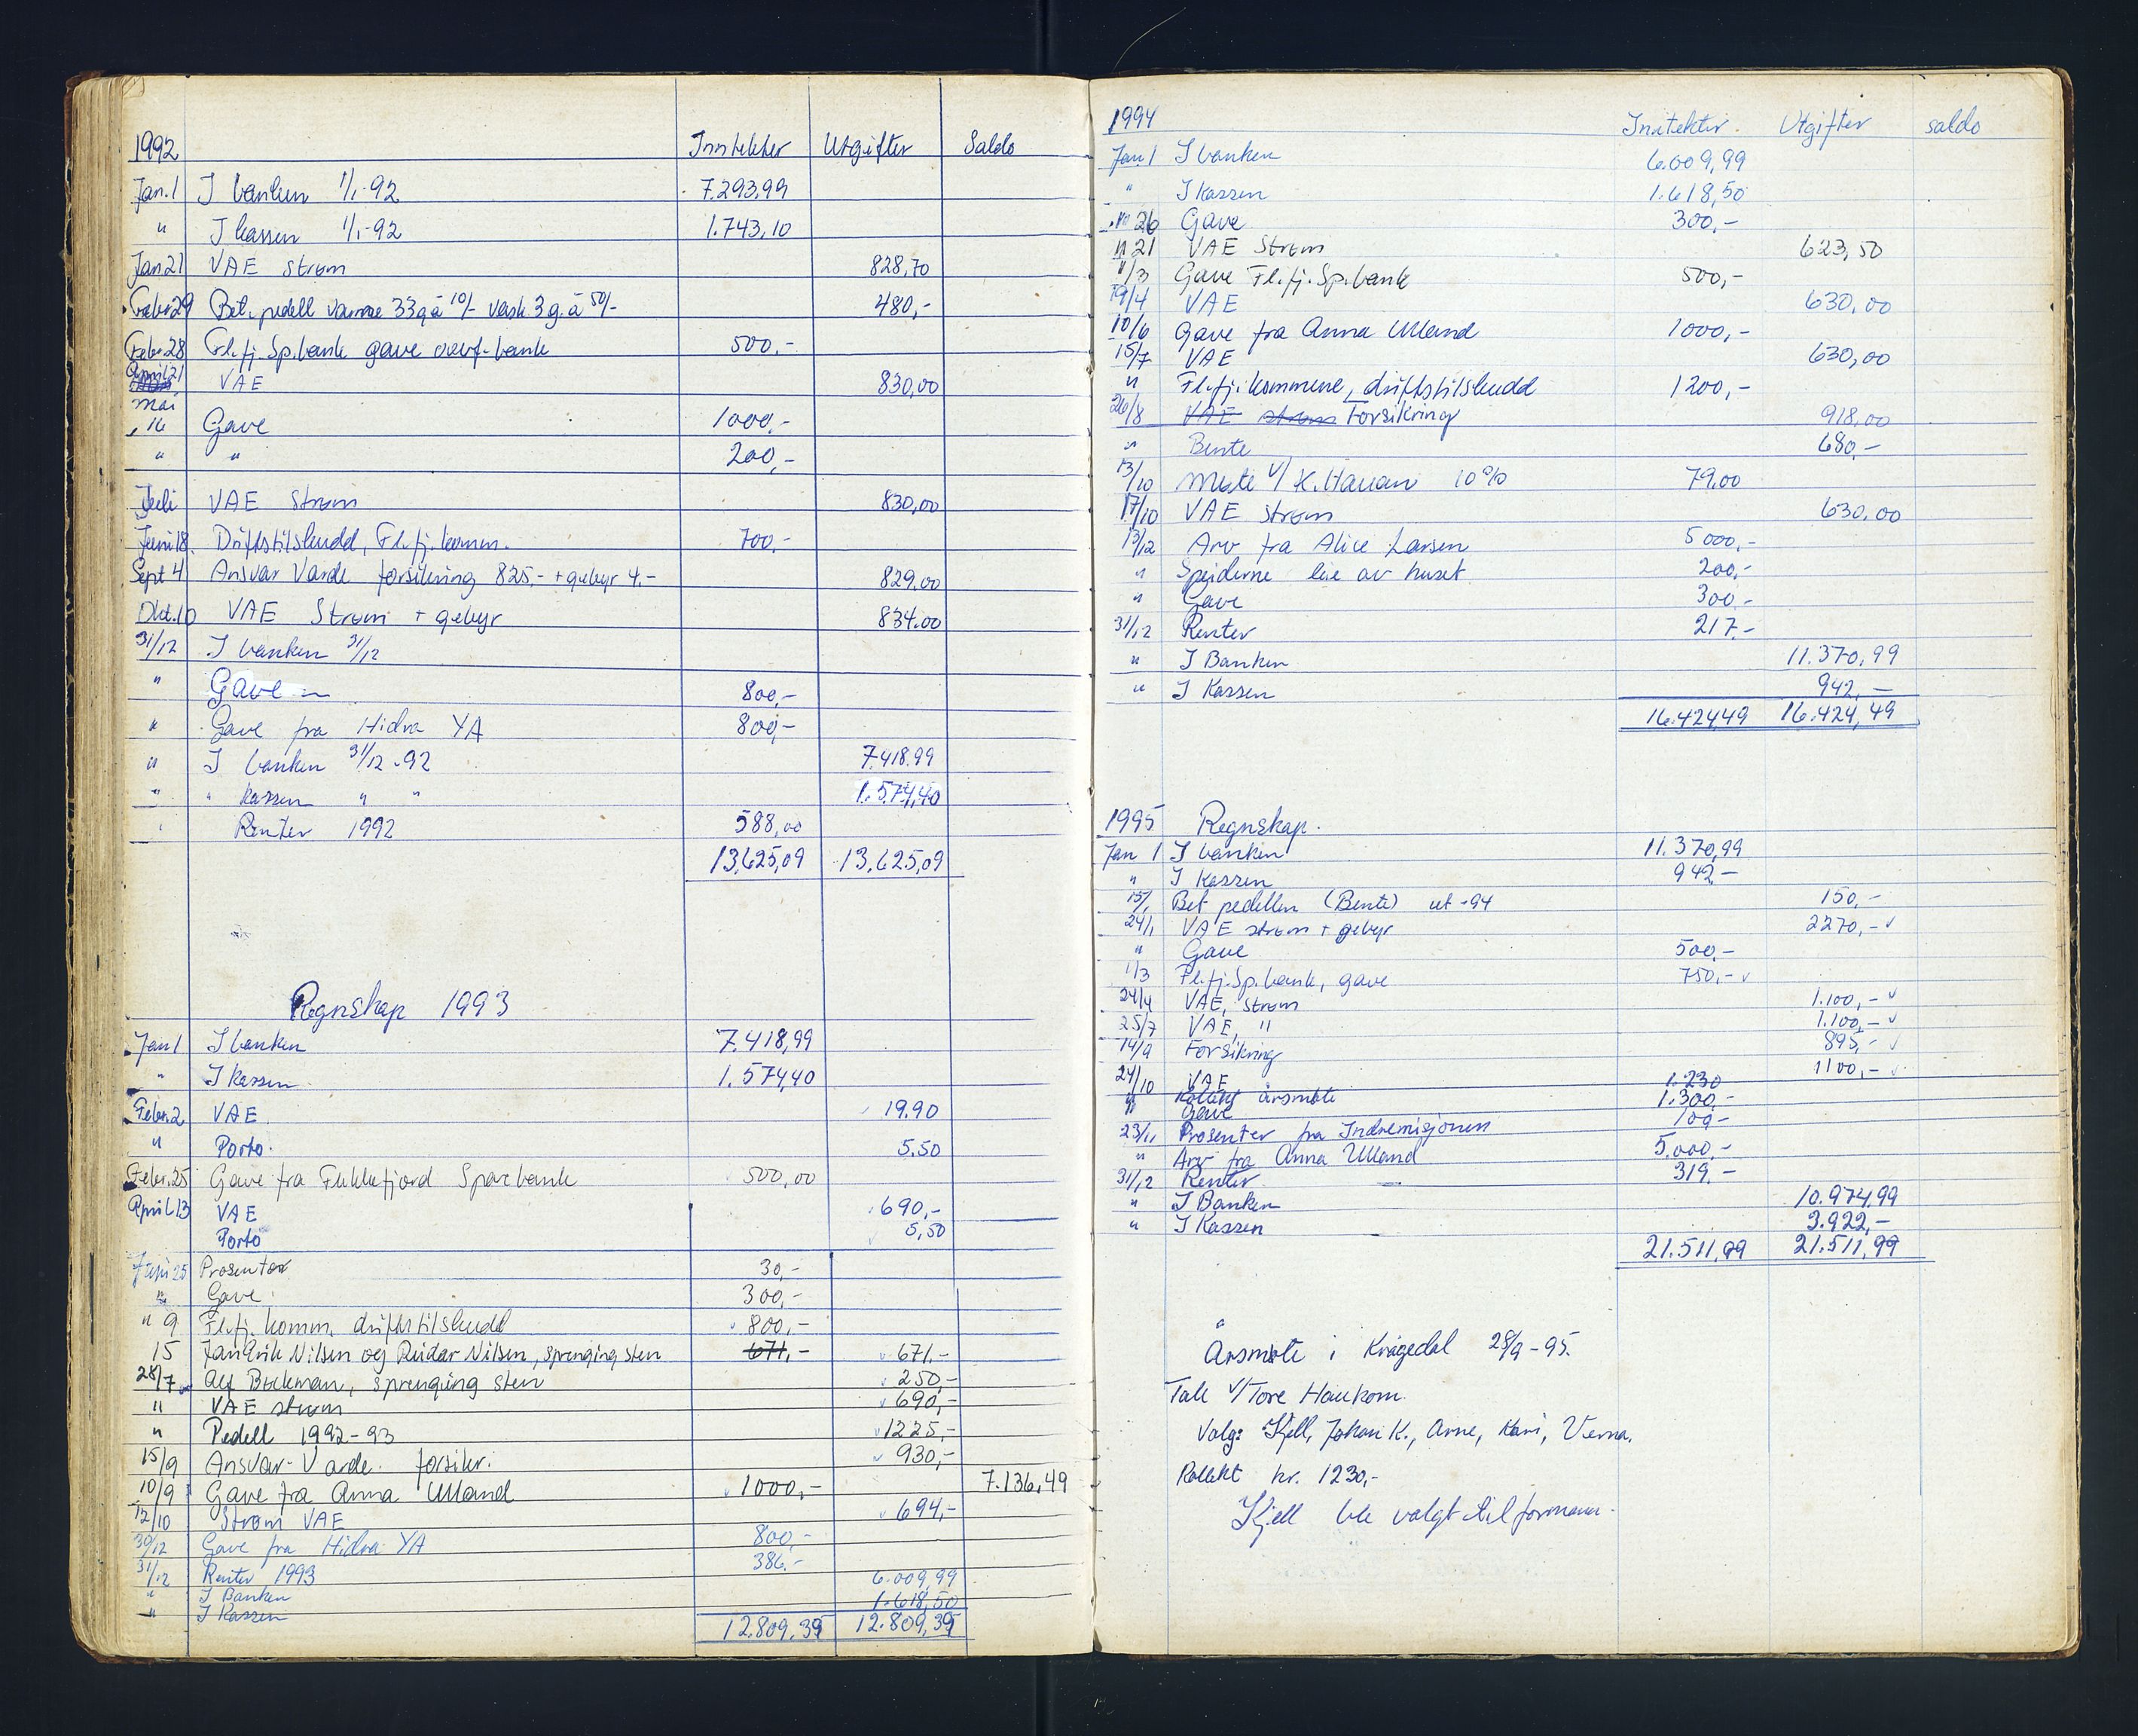 1992 Inntekter Utgifter Saldo
Jan. 1 I banken 1/1-92 7.293,99
" I kassen 1/1-92 1.743,10
Jan 21 VAE strøm 828,70
Febr 29 Bet. pedell varme 33 g à 10/- vask 3 g. à 50/- 480,-
Febr 28 Fl.fj. Sp.bank gave overf. bank 500,-
April 21 VAE 830,00
Mai
" 16 Gave 1000,-
" " 200,-
Juli VAE Strøm 830,00
Juni 18 Driftstilskudd, Fl.fj. komm. 700,-
Sept 4 Ansvar Varde forsikring 825,- + gebyr 4.- 829.00
Okt. 10 VAE Strøm + gebyr 834.00
31/12 I banken 31/12
" Gave 800,-
" Gave fra Hidra YA 800,-
" I banken 31/12-92 7.418.99
" " kassen " " 1.574,40
Renter 1992 588,00
13.625,09 13.625,09
Regnskap 1993
Jan 1 I banken 7.418,99
" I kassen 1.574,40
Febr. 2 VAE. 19.90
" Porto. 5.50
Febr. 25 Gave fra Flekkefjord Sparbank 500,00
April 13 VAE 690,-
Porto 5,50
Juni 25 Prosenter 30,-
" Gave 300,-
" 9 Fl.fj. komm. driftstilskudd 800,-
15 Jan Erik Nilsen og Reidar Nilsen, sprenging sten 671,- 671.-
28/7 Alf Bøckman, sprenging sten 250,-
" VAE strøm 690,-
" Pedell 1992-93 1225,-
15/9 Ansvar-Varde. forsikr. 930,-
10/9 Gave fra Anna Ulland 1000,- 7.136,49
12/10 Strøm VAE 694,-
30/12 Gave fra Hidra YA 800,-
31/12 Renter 1993 386.-
" I Banken 6.009,99
" I Kassen 1.618,50
12.809.39 12.809,39
1994 Inntekter. Utgifter saldo
Jan. 1 I banken 6.009,99
" I kassen 1.618,50
" 26 Gave 300,-
" 21 VAE Strøm 623,50
1/3 Gave Fl.fj. Sp.bank 500,-
19/4 VAE 630.00
10/6 Gave fra Anna Ulland 1000,-
15/7 VAE 630,00
" Fl.fj. kommune, driftstilskudd 1200,-
26/8 VAE strøm Forsikring 918,00
" Bente 680,-
13/10 Møte v/ K. Hauan 10% 79.00
17/10 VAE strøm 630.00
13/12 Arv fra Alice Larsen 5000,-
" Speiderne leie av huset 200,-
" Gave 300,-
31/12 Renter 217.-
" I Banken 11.370,99
" I Kassen 942,-
16.424,49 16.424,49
1995 Regnskap.
Jan 1 I banken 11.370,99
" I Kassen 942-
15/1 Bet pedellen (Bente) ut -94 150,-
24/1 VAE strøm + gebyr 2270,-
" Gave 500,-
1/3 Fl.fj. Sp.bank, gave 750,-
24/4 VAE, Strøm 1.100,-
25/7 VAE, " 1.100,-
14/9 Forsikring 895,-
24/10 VAE 1100,-
" Kollekt årsmøte 1.230
" Gave 1.300,-
23/11 Prosenter fra Indremisjonen 100,-
" Arv fra Anna Ulland 5.000,-
31/12 Renter 319,-
" I Banken 10.974,99
" I Kassen 3.922,-
21.511,99 21.511,99
Årsmøte i Kvågedal 28/9-95.
Tale v/ Tore Haukom.
Valg: Kjell, Johan K., Arne, Kari, Verna.
Kollekt kr. 1230,-
Kjell ble valgt til formann.